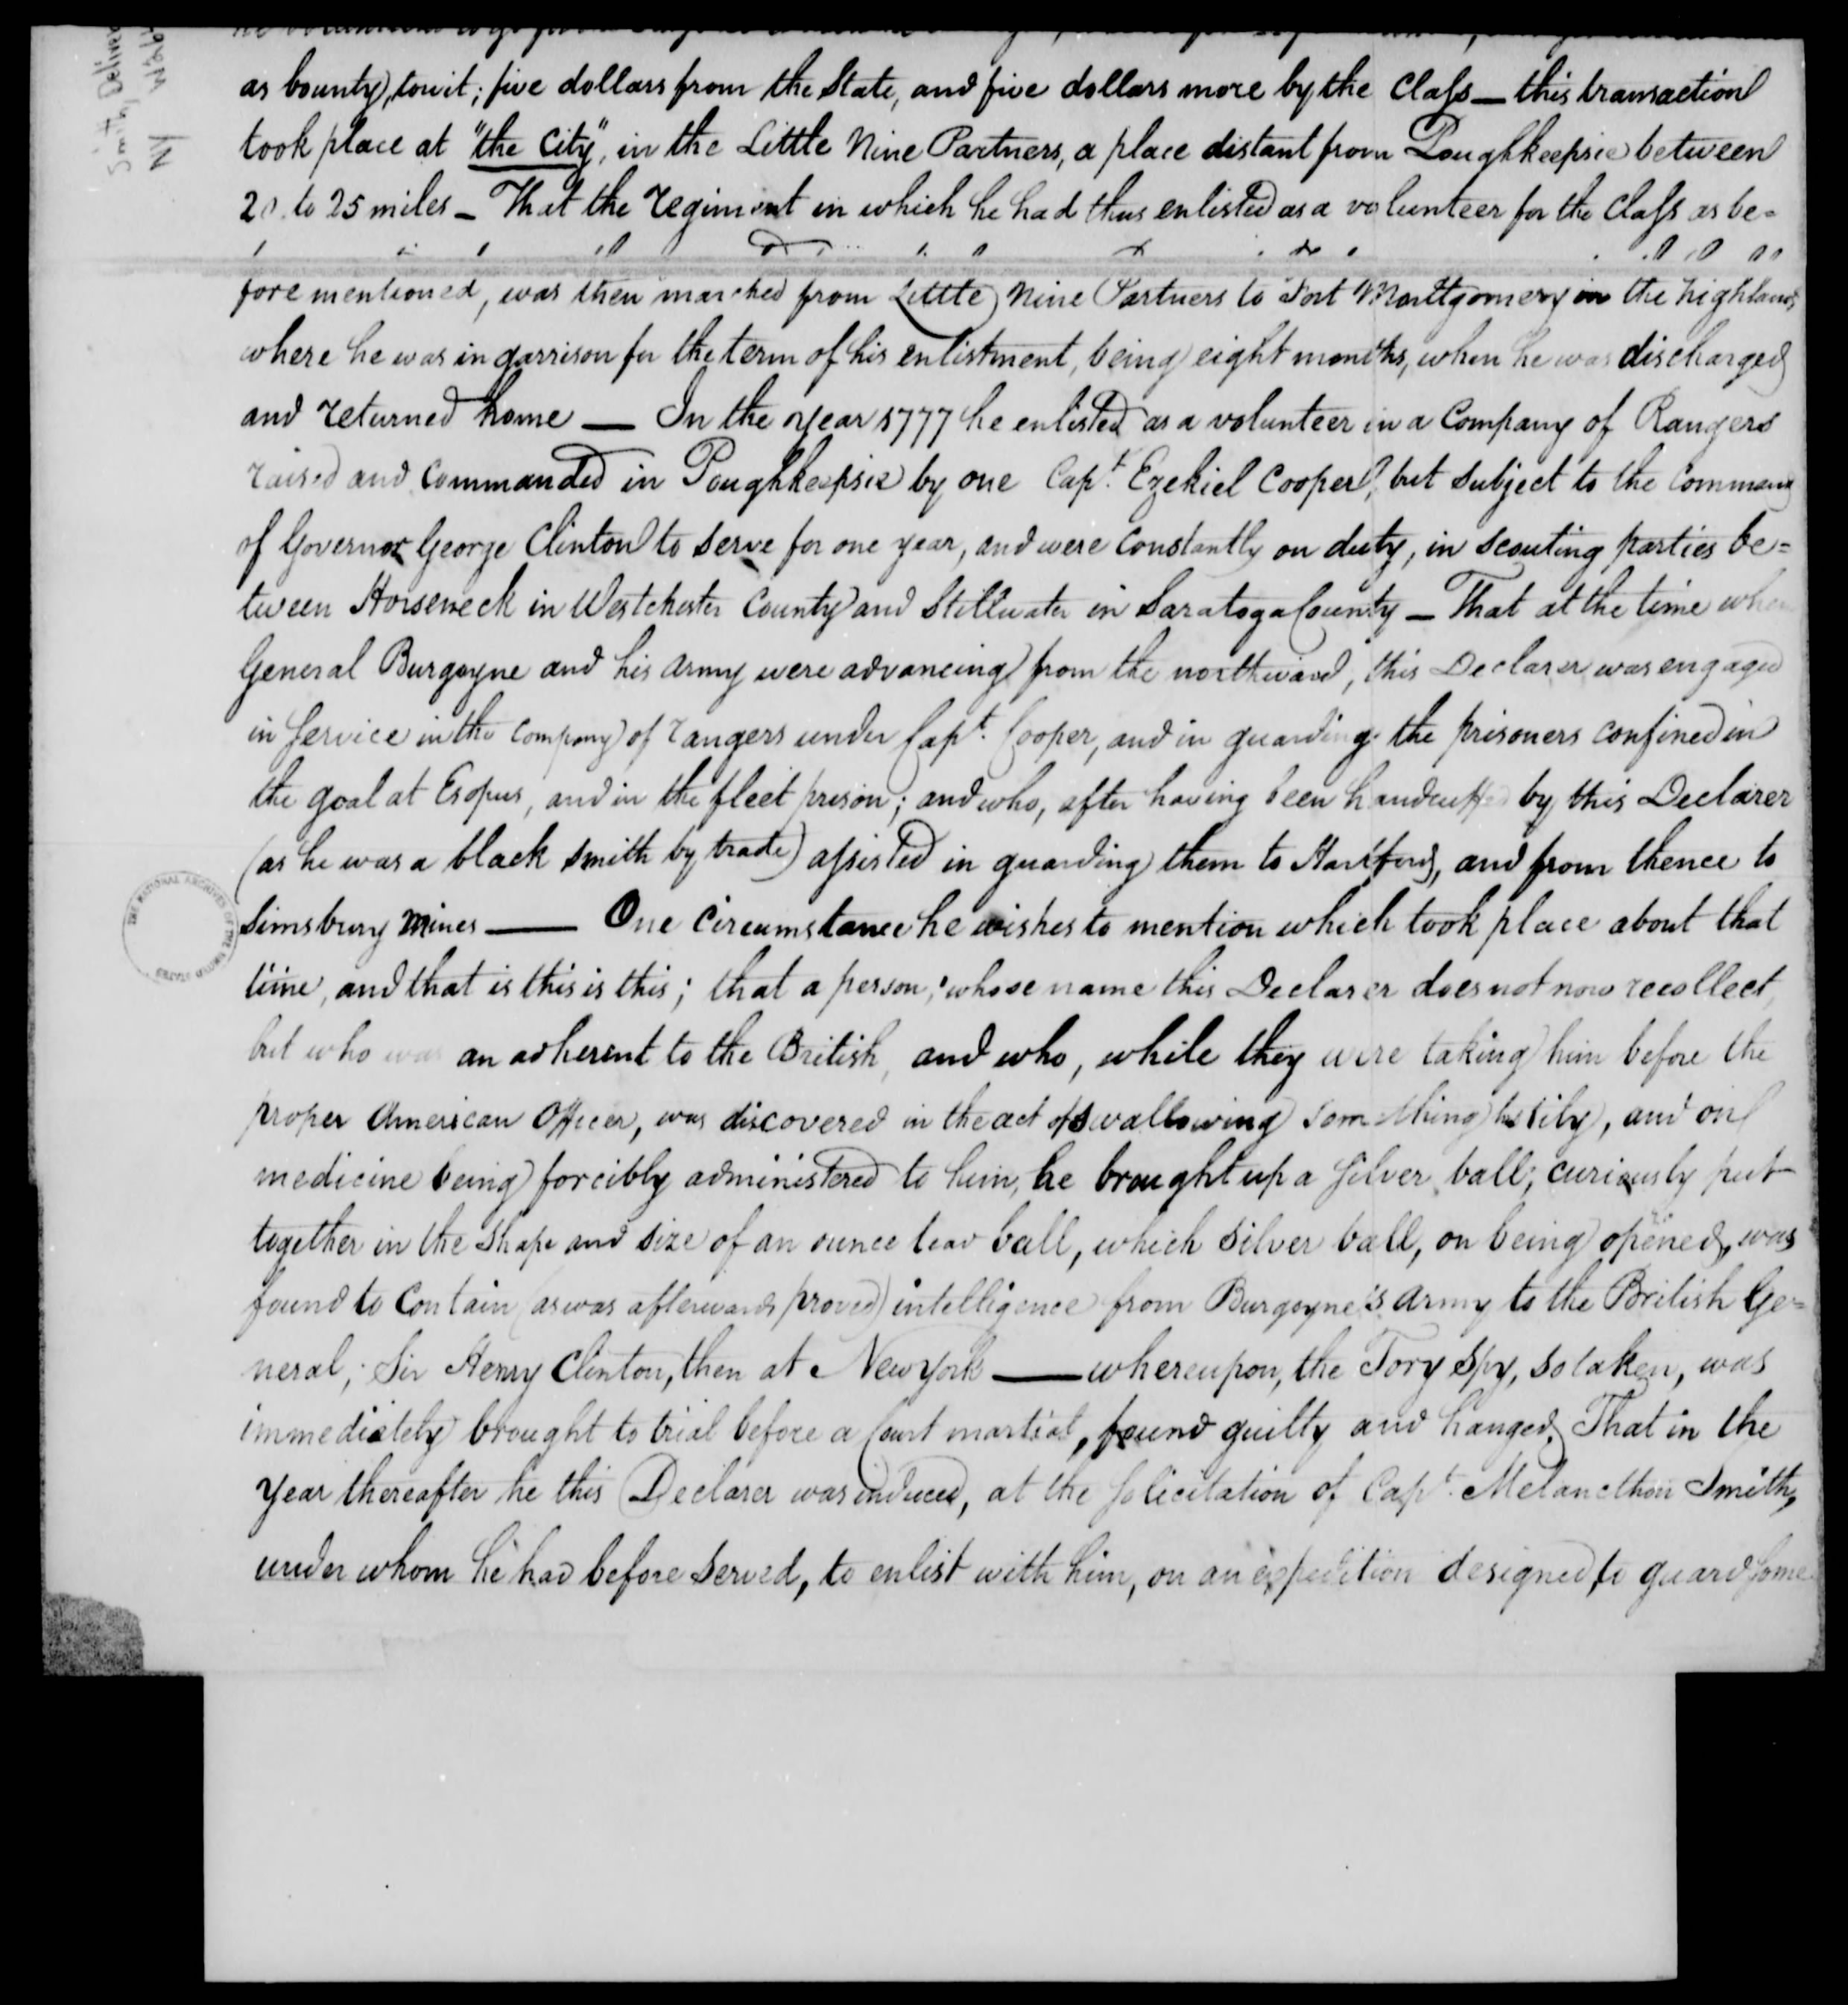 Smith, Deliver
NY
as bounty, towit; five dollars from the State, and five dollars more by the Class — this transaction
took place at "the City", in the Little Nine Partners, a place distant from Poughkeepsie between
20 to 25 miles — That the regiment in which he had thus enlisted as a volunteer for the Class as be=
fore mentioned, was then marched from Little Nine Partners to Fort Montgomery in the highlands
where he was in garrison for the term of his enlistment, being eight months, when he was discharged
and returned home — In the year 1777 he enlisted as a volunteer in a Company of Rangers
raised and Commanded in Poughkeepsie by one Capt. Ezekiel Cooper, but subject to the Command
of Governor George Clinton to serve for one year, and were constantly on duty, in scouting parties be=
tween Horseneck in Westchester County and Stillwater in Saratoga County — That at the time when
General Burgoyne and his army were advancing from the northward, this Declarer was engaged
in service in the Company of rangers under Capt. Cooper, and in guarding the prisoners confined in
the goal at Esopus, and in the fleet prison; and who, after having been handcuffed by this Declarer
(as he was a black smith by trade) assisted in guarding them to Hartford, and from thence to
Simsbury Mines — One Circumstance he wishes to mention which took place about that
time, and that is this is this; that a person, whose name this Declarer does not now recollect,
but who was an adherent to the British, and who, while they were taking him before the
proper American Officer, was discovered in the act of swallowing something hastily, and on
medicine being forcibly administered to him, he brought up a silver ball; curiously put
together in the shape and size of an ounce lead ball, which silver ball, on being opened, was
found to Contain (as was afterwards proved) intelligence from Burgoyne's army to the British Ge=
neral; Sir Henry Clinton, then at New York — whereupon, the Tory spy, so taken, was
immediately brought to trial before a Court martial, found guilty and hanged. That in the
year thereafter he this Declarer was induced, at the solicitation of Capt. Melancthon Smith,
under whom he had before served, to enlist with him, on an expedition designed to guard some
THE NATIONAL ARCHIVES OF THE UNITED STATES